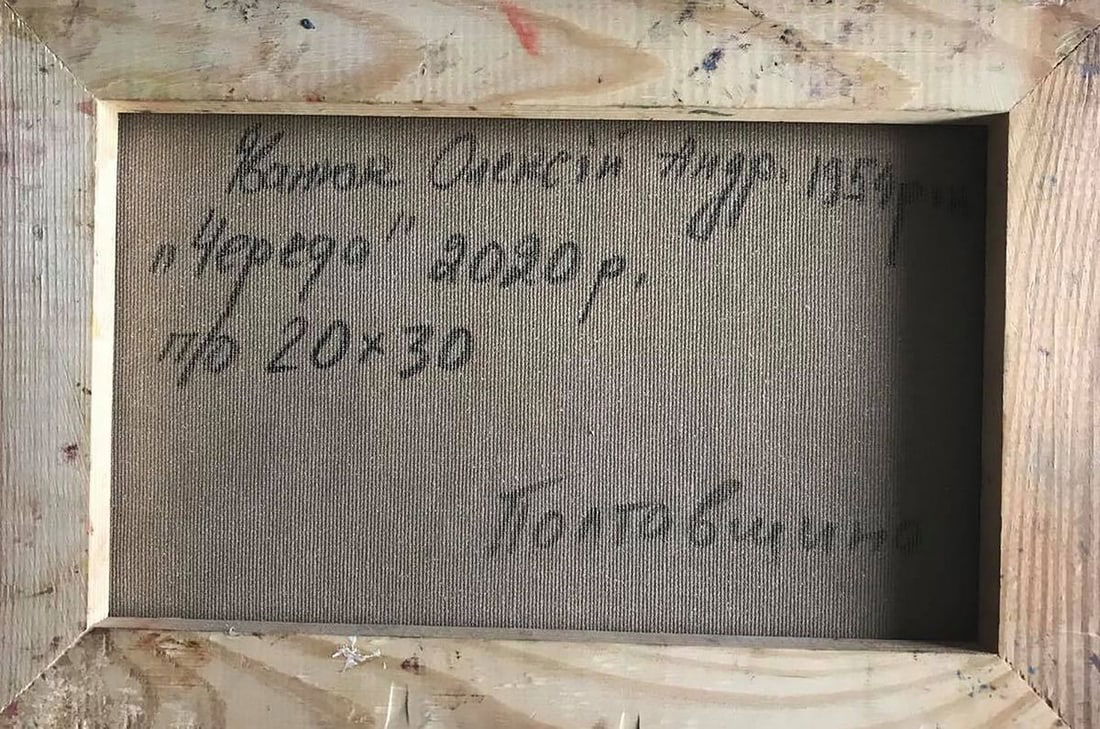 Іванюк Олексій Андр. 1954 р.н
п "Череда" 2020 р.
п/о 20х30
Полтавщина